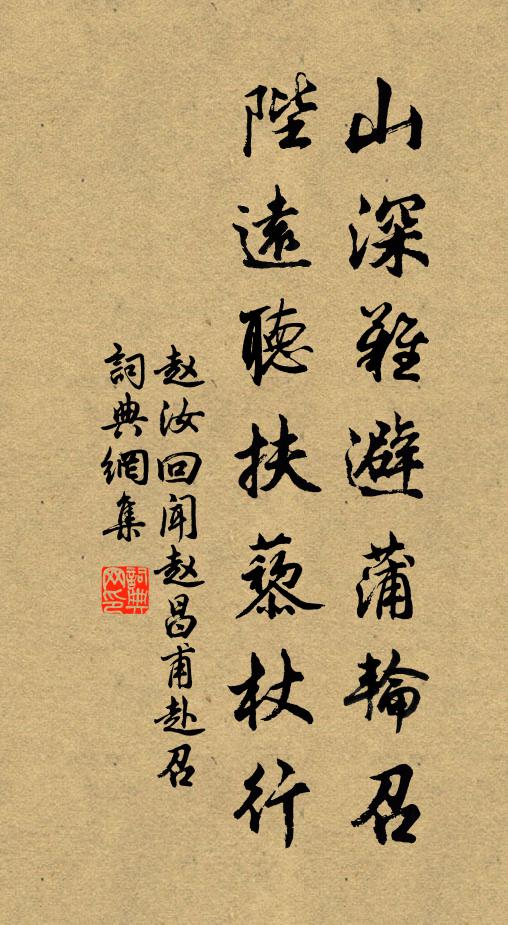 山深難避蒲輪召
陛遠聽扶藜杖行
赵汝回闻赵昌甫赴召
詞典網集
詞典网印